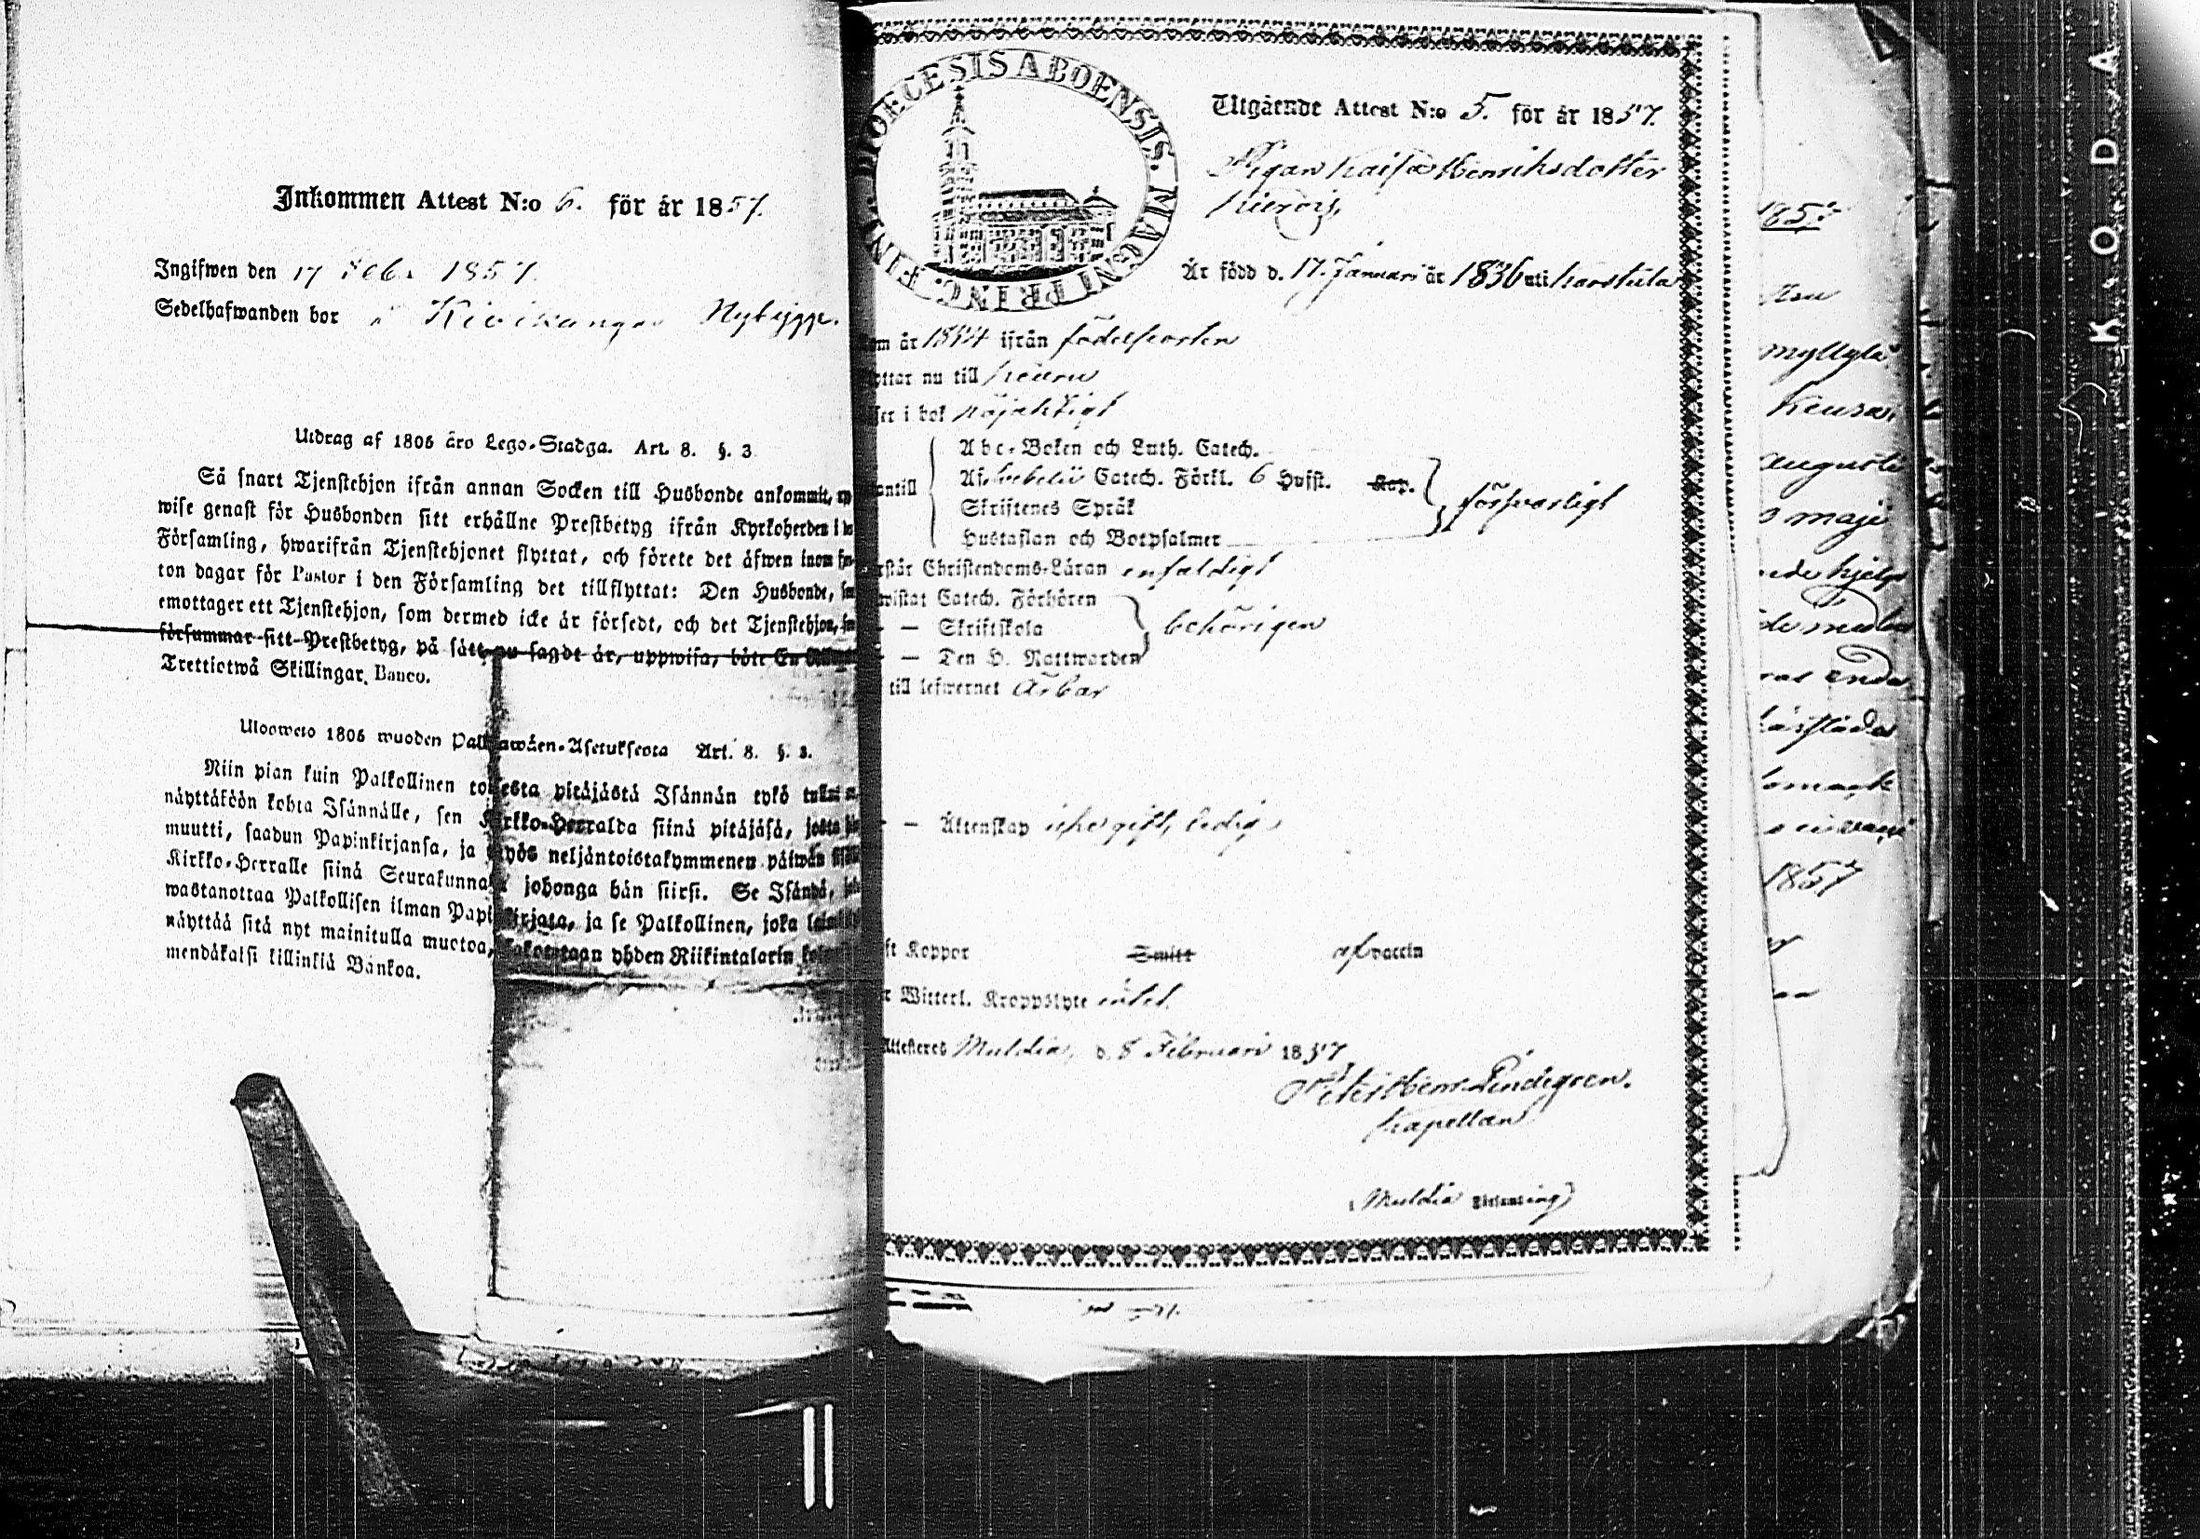 Inkommen Attest N:o 6. för år 1857.
Ingifwen den 17 Feb. 1857.
Sedelhafwanden bor Kivikangas Nybygge.
Utdrag af 1805 års Lego-Stadga. Art. 8. §. 3
Så snart Tjenstehjon ifrån annan Socken till Husbonde ankommit,
wise genast för Husbonden sitt erhållne Prestbetyg ifrån Kyrkoherden i
Församling, hwarifrån Tjenstehjonet flyttat, och förete det äfwen inom
ton dagar för Pastor i den Församling det tillflyttat: Den Husbonde,
emottager ett Tjenstehjon, som dermed icke är försedt, och det Tjenstehjon,
försummar sitt Prestbetyg, på sätt nu sagdt är, uppwisa, böte En
Trettiotwå Skillingar Banco.
Ulosweto 1805 wuoden Palkkawäen-Asetuksesta Art. 8. §. 3.
Niin pian kuin Palkollinen toisesta pitäjästä Isännän tykö tullut
näyttäköön kohta Isännälle, sen Kirkko-Herralda siinä pitäjäsä, josta
muutti, saadun Papinkirjansa, ja myös neljäntoistakymmenen päiwän
Kirkko-Herralle siinä Seurakunnasa johonga hän siirsi. Se Isändä,
wastanottaa Palkollisen ilman Papinkirjata, ja se Palkollinen, joka
näyttää sitä nyt mainitulla muotoa, sakotetaan yhden Riikintalarin
mendäkaksi killinkiä Bankoa.
DIOECESIS ABOENSIS. MAGNI PRINC. FINL.
Utgående Attest N:o 5. för år 1857.
Pigan Kaisa Henriksdotter
Är född d. 17. Januari år 1836 uti Karstula
år 1854 ifrån födelseorten
nu till Keuru
i bok nöjaktigt
Abc-Boken och Luth. Catech.
Catech. Förkl. 6 Hufst. Kap.
Skriftenes Språk
Hustaflan och Botpsalmer
försvarligt
Christendoms-Läran enfaldigt
Catech. Förhören
— Skriftskola
— Den H. Nattwarden
behörigen
till lefwernet Ärbar
— Äktenskap icke gift, ledig
Koppor Smitt af vaccin
Witterl. Kroppslyte intet.
Attesteres Muldia, d. 8 Februari 1857
Peter Henr. Lindegren.
Kapellan
Muldia Församling
1857
Myllylä
Keuru
augusti
maji
1857
KODA